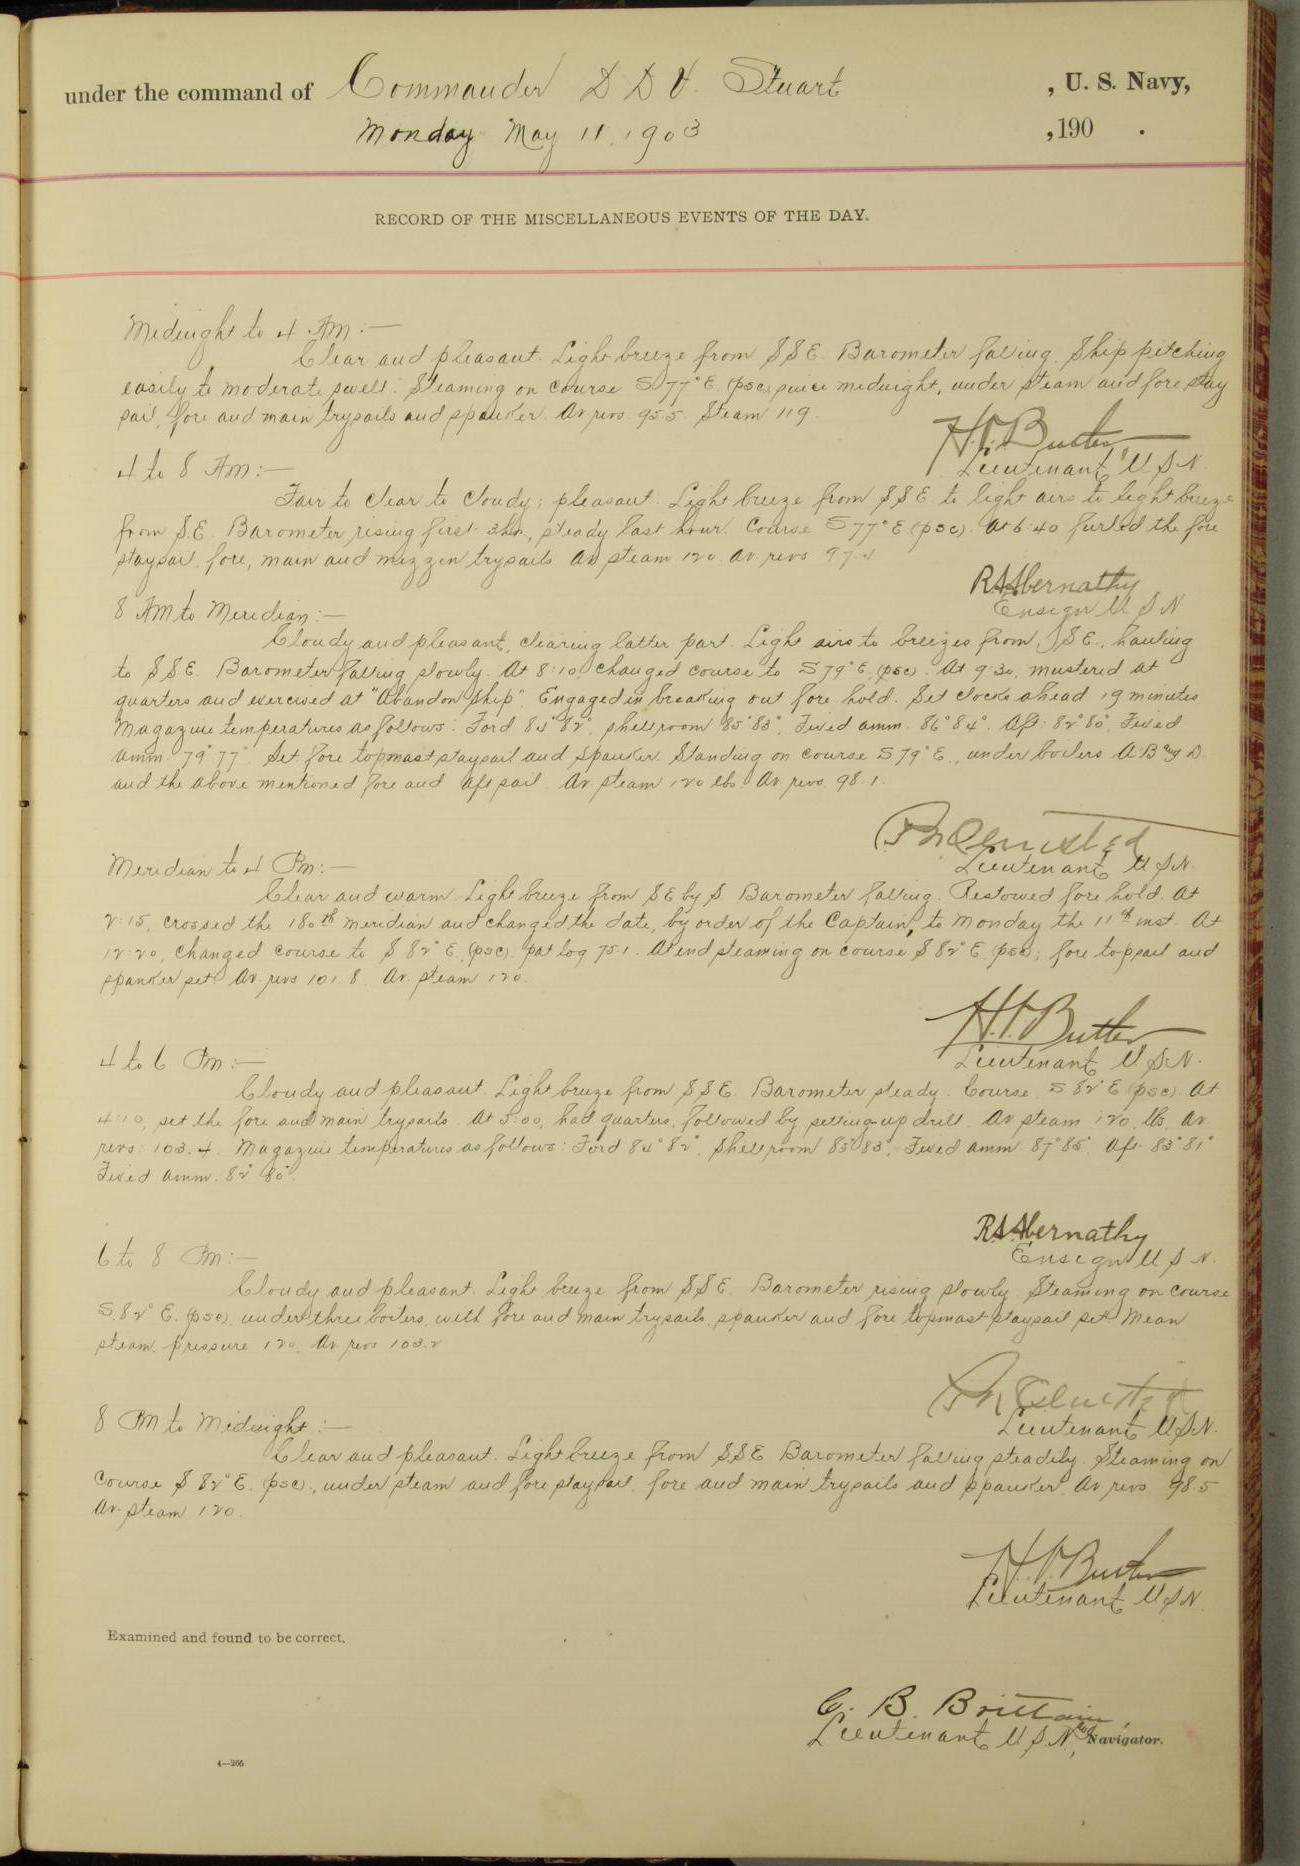 under the command of Commander D D V. Stuart , U. S. Navy,
Monday May 11, 1903 , 190 .
RECORD OF THE MISCELLANEOUS EVENTS OF THE DAY.
Midnight to 4 AM:—
Clear and pleasant. Light breeze from SSE. Barometer falling. Ship pitching
easily to moderate swell. Steaming on course S 77° E (psc) since midnight, under steam and fore stay
sail, fore and main trysails and spanker. Av revs 95.5. Steam 119.
H.V. Butler
Lieutenant U S N.
4 to 8 AM:—
Fair to clear to cloudy; pleasant. Light breeze from SSE to light airs to light breeze
from SE. Barometer rising first 3 hrs, steady last hour. Course S 77° E (psc). At 6:40 furled the fore
staysail, fore, main and mizzen trysails. Av steam 120. Av revs 97.4
R.S. Abernathy
Ensign U S N
8 AM to Meridian:—
Cloudy and pleasant, clearing latter part. Light airs to breezes from SE., hauling
to SSE. Barometer falling slowly. At 8:10, changed course to S 79° E. (psc). At 9:30, mustered at
quarters and exercised at "Abandon Ship". Engaged in breaking out fore hold. Set clocks ahead 19 minutes
Magazine temperatures as follows: Ford 84° 82°, shellroom 85° 83°, Fixed amm. 86° 84°. Aft: 82° 80°, Fixed
amm. 79° 77°. Set fore topmast staysail and spanker. Standing on course S 79° E., under boilers A. B and D.
and the above mentioned fore and aft sail. Av. steam 120 lbs. Av revs. 98.1.
Olmsted
Lieutenant U S N.
Meridian to 4 PM:—
Clear and warm. Light breeze from SE by S. Barometer falling. Restowed fore hold. At
2:15, crossed the 180th meridian and changed the date, by order of the Captain, to Monday the 11th inst. At
12:20, changed course to S 82° E. (psc). pat log 75.1. At end steaming on course S 82° E (psc); fore topsail and
spanker set. Av revs 101.8. Av. steam 120.
H.V. Butler
Lieutenant U S N.
4 to 6 PM:—
Cloudy and pleasant. Light breeze from SSE. Barometer steady. Course S 82° E (psc). At
4:10, set the fore and main trysails. At 5:00, had quarters, followed by setting-up drill. Av steam 120 lbs. Av
revs: 103.4. Magazine temperatures as follows: Ford 84° 82°. Shellroom 85° 83°, Fixed amm. 87° 85°. Aft. 83° 81°
Fixed amm. 82° 80°.
R.S. Abernathy
Ensign U S N.
6 to 8 PM:—
Cloudy and pleasant. Light breeze from SSE. Barometer rising slowly. Steaming on course
S. 82° E. (psc). under three boilers, with fore and main trysails, spanker and fore topmast staysail set. Mean
steam. pressure 120. Av. revs 103.2
Olmsted
Lieutenant U S N.
8 PM to Midnight:—
Clear and pleasant. Light breeze from SSE. Barometer falling steadily. Steaming on
course S 82° E. (psc)., under steam and fore staysail, fore and main trysails and spanker. Av revs. 98.5
Av. steam 120.
H.V. Butler
Lieutenant U S N.
Examined and found to be correct.
C. B. Brittain,
Lieutenant U S N, Navigator.
4—266